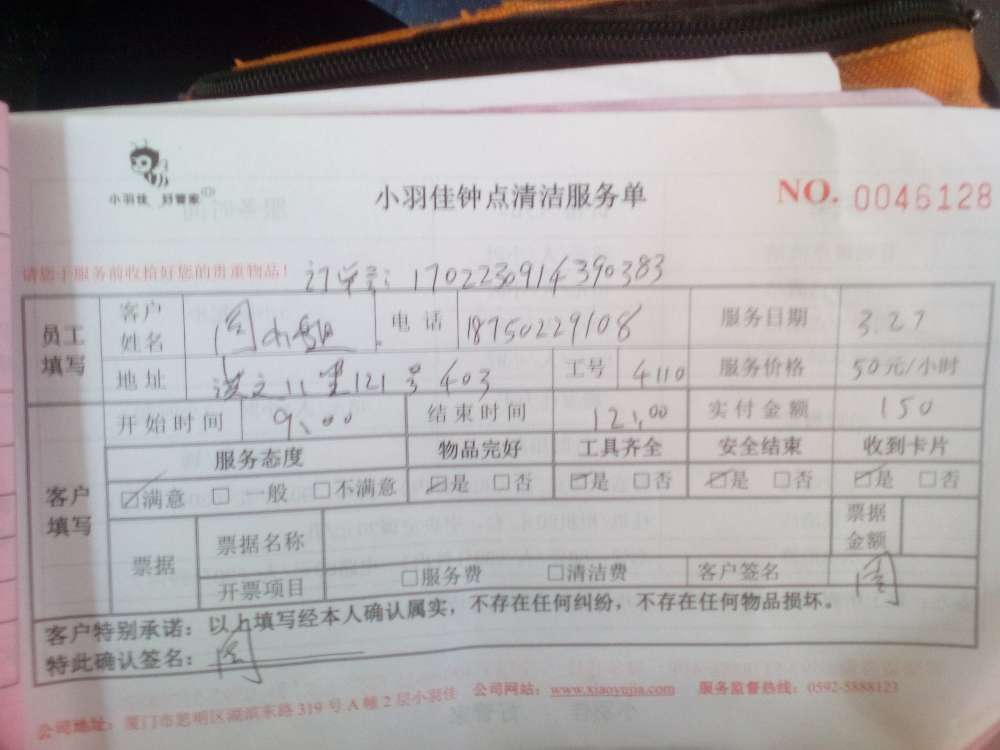 小羽佳 好管家
小羽佳钟点清洁服务单
NO. 0046128
请您于服务前收拾好您的贵重物品!
订单号: 1702230914390383
员工填写 客户姓名 电话 18750229108 服务日期 3.27
地址 洪文11里121号403 工号 4110 服务价格 50元/小时
客户填写 开始时间 9:00 结束时间 12:00 实付金额 150
服务态度 物品完好 工具齐全 安全结束 收到卡片
☑满意 □一般 □不满意 ☑是 □否 ☑是 □否 ☑是 □否 ☑是 □否
票据 票据名称 票据金额
开票项目 □服务费 □清洁费 客户签名
客户特别承诺:以上填写经本人确认属实,不存在任何纠纷,不存在任何物品损坏。
特此确认签名:
公司地址:厦门市思明区湖滨东路319号A幢2层小羽佳 公司网站:www.xiaoyujia.com 服务监督热线:0592-5888123